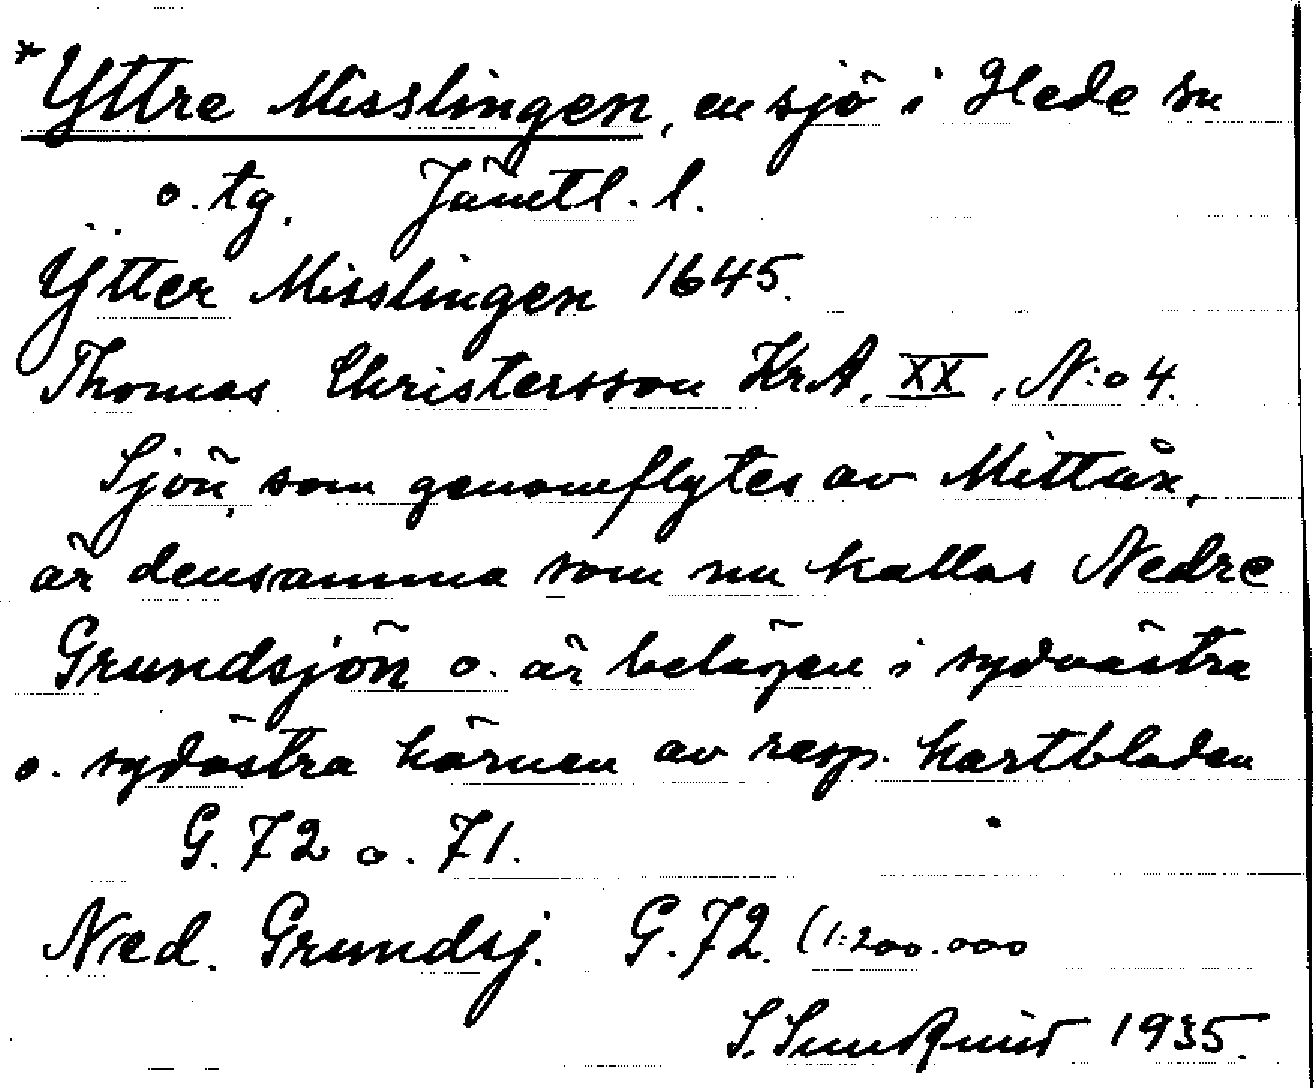 *Yttre Misslingen, en sjö i Hede sn
o. tg. Jämtl. l.
Ÿtter Misslingen 1645.
Thomas Christersson KrA, XX, N:o 4.
Sjön, som genomflytes av Mittån,
är densamma som nu kallas Nedre
Grundsjön o. är belägen i sydvästra
o. sydöstra hörnen av resp. kartbladen
G. 72 o. 71.
Ned. Grundsj. G. 72. (1:200.000
S. Sundquist 1935.